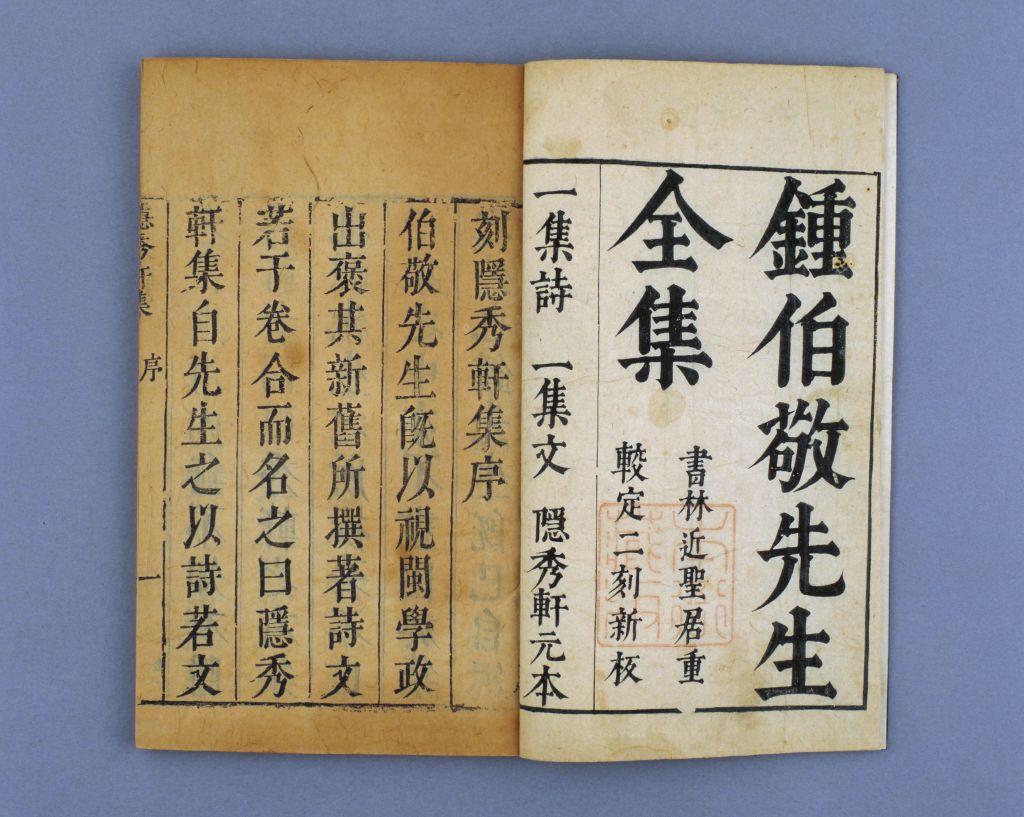 鍾伯敬先生
全集
書林近聖居重
較定二刻新板
一集詩 一集文 隱秀軒元本
刻隱秀軒集序
伯敬先生旣以視閩學政
出裒其新舊所撰著詩文
若干卷合而名之曰隱秀
軒集自先生之以詩若文
隱秀軒集 序 一